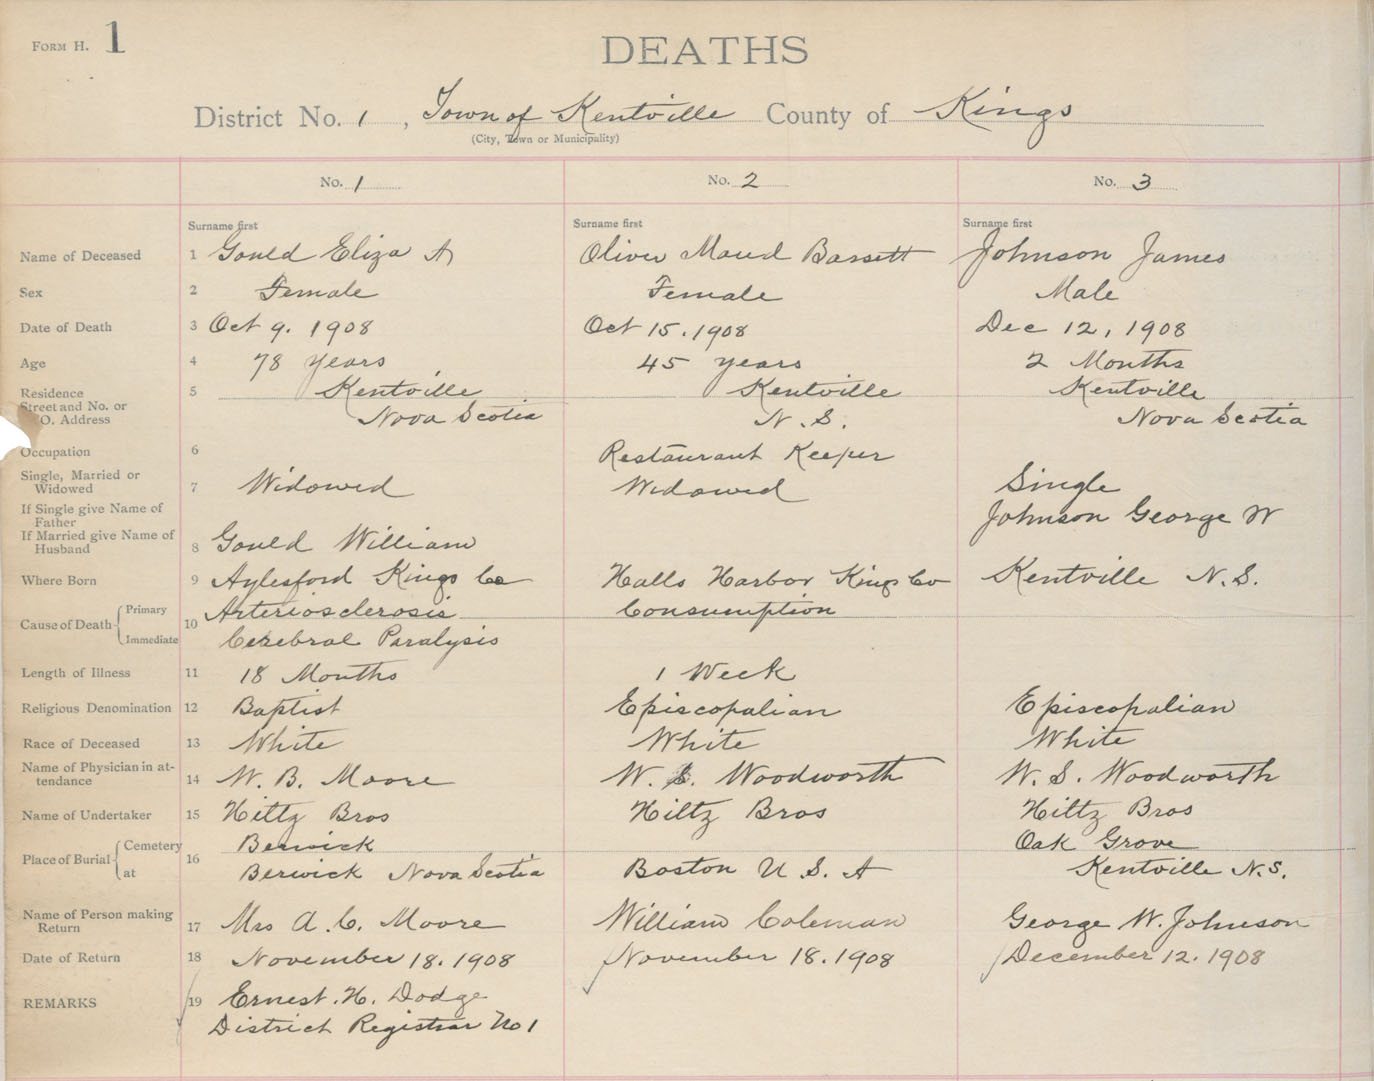 FORM H. 1
DEATHS
District No. 1 , Town of Kentville County of Kings
(City, Town or Municipality)
No. 1 No. 2 No. 3
Surname first Surname first Surname first
Name of Deceased 1 Gould Eliza A Oliver Maud Bassett Johnson James
Sex 2 Female Female Male
Date of Death 3 Oct 9. 1908 Oct 15. 1908 Dec 12, 1908
Age 4 78 years 45 years 2 Months
Residence 5 Kentville Kentville Kentville
Street and No. or Nova Scotia N. S. Nova Scotia
O. Address
Occupation 6 Restaurant Keeper
Single, Married or
Widowed 7 Widowed Widowed Single
If Single give Name of
Father Johnson George W
If Married give Name of
Husband 8 Gould William
Where Born 9 Aylesford Kings Co Halls Harbor Kings Co Kentville N.S.
Cause of Death Primary 10 Arteriosclerosis Consumption
Immediate Cerebral Paralysis
Length of Illness 11 18 Months 1 Week
Religious Denomination 12 Baptist Episcopalian Episcopalian
Race of Deceased 13 White White White
Name of Physician in at-
tendance 14 W. B. Moore W. S. Woodworth W. S. Woodworth
Name of Undertaker 15 Hiltz Bros Hiltz Bros Hiltz Bros
Place of Burial Cemetery 16 Berwick Oak Grove
at Berwick Nova Scotia Boston U. S. A Kentville N.S.
Name of Person making
Return 17 Mrs A. C. Moore William Coleman George W. Johnson
Date of Return 18 November 18. 1908 November 18. 1908 December 12. 1908
REMARKS 19 Ernest. H. Dodge
District Registrar No 1